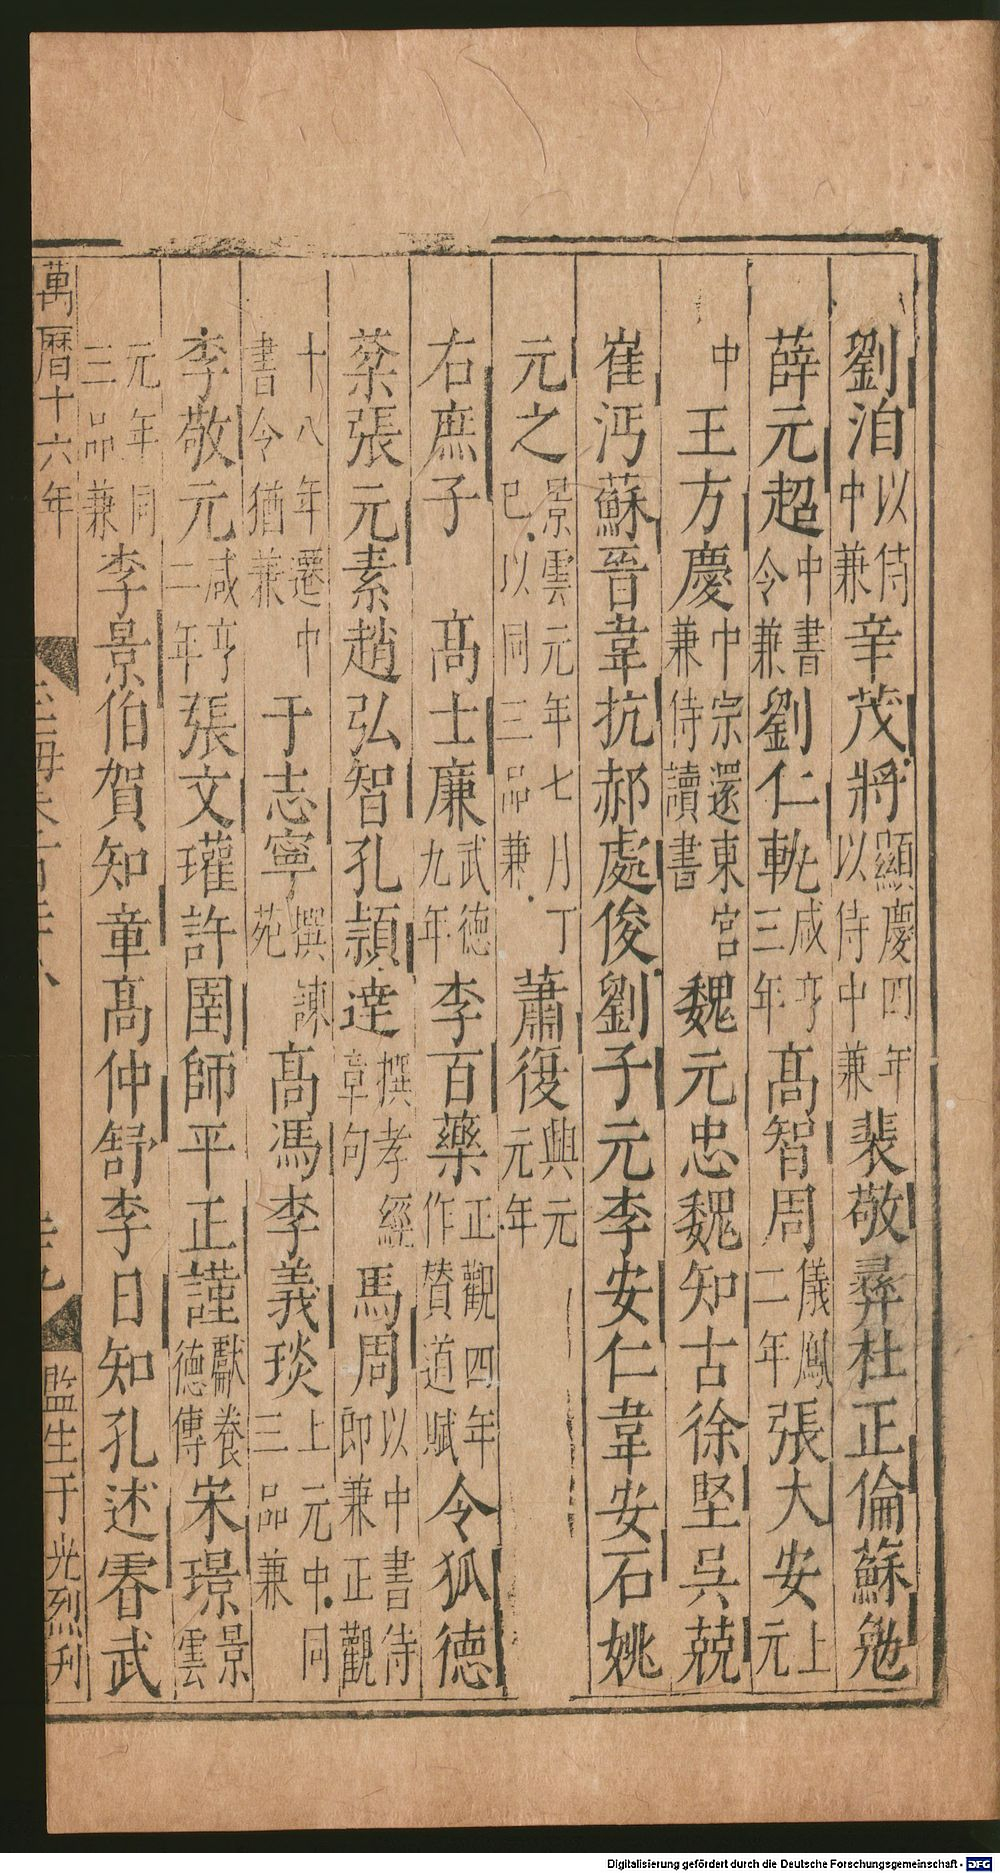 劉洎以侍中兼辛茂將顯慶四年以侍中兼裴敬彞杜正倫蘇勉
薛元超中書令兼劉仁軌咸亨三年高智周儀鳳二年張大安上元
中王方慶中宗還東宮兼侍讀書魏元忠魏知古徐堅吳兢
崔沔蘇晉韋抗郝處俊劉子元李安仁韋安石姚
元之景雲元年七月丁巳以同三品兼蕭復興元元年
右庶子高士廉武德九年李百藥正觀四年作贊道賦令狐德
棻張元素趙弘智孔頴達撰孝經章句馬周以中書侍即兼正觀
十八年遷中書令猶兼于志寧撰諫苑高馮李義琰上元中同三品兼
李敬元咸亨二年張文瓘許圉師平正謹獻養德傳宋璟景雲
元年同三品兼李景伯賀知章高仲舒李日知孔述睿武
萬曆十六年
玉海
監生于光烈刋
Digitalisierung gefördert durch die Deutsche Forschungsgemeinschaft - DFG